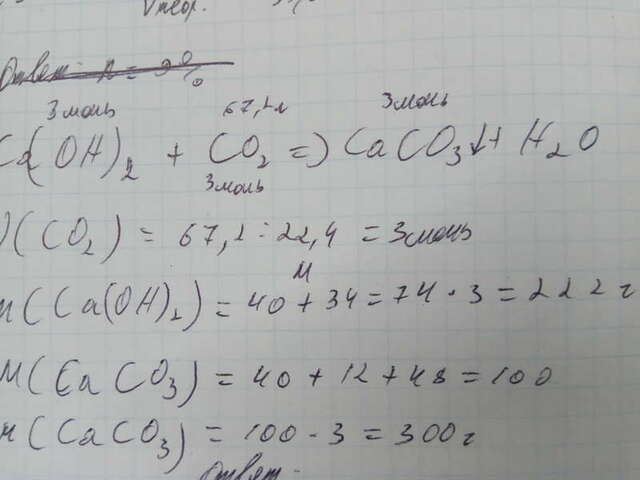 Vтеор.
Ответ: n = %
3 моль 67,2л 3 моль
Ca(OH)2 + CO2 => CaCO3↓ + H2O
3 моль
)(CO2) = 67,2 : 22,4 = 3 моль
M
m(Ca(OH)2) = 40 + 34 = 74 · 3 = 222 г
M(CaCO3) = 40 + 12 + 48 = 100
m(CaCO3) = 100 · 3 = 300 г
Ответ: